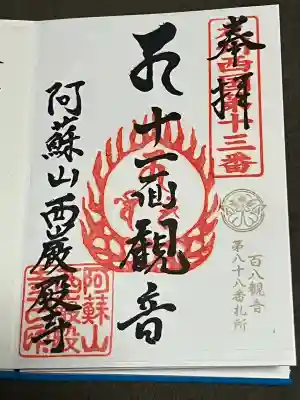 奉拝
九州西国第十三番
百八観音
第八十八番札所
十一面観音
阿蘇山西巌殿寺
阿蘇山
西巌殿